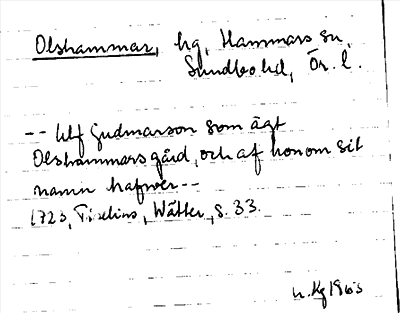 Olshammar, hg, Hammars sn,
Sundbo hd, Ör. l.
-- Ulf Gudmarson som ägt
Olshammars gård, och af honom sit
namn hafwer --
1723, Tiselius, Wätter, s. 33.
1965